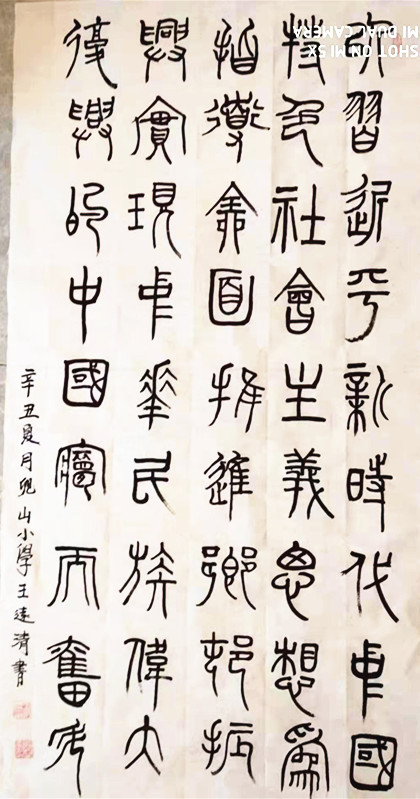 以習近平新時代中國
特色社會主義思想為
指導全面推進鄉村振
興實現中華民族偉大
復興的中國夢而奮斗
辛丑夏月兜山小學王遠清書
SHOT ON MI 5X
MI DUAL CAMERA